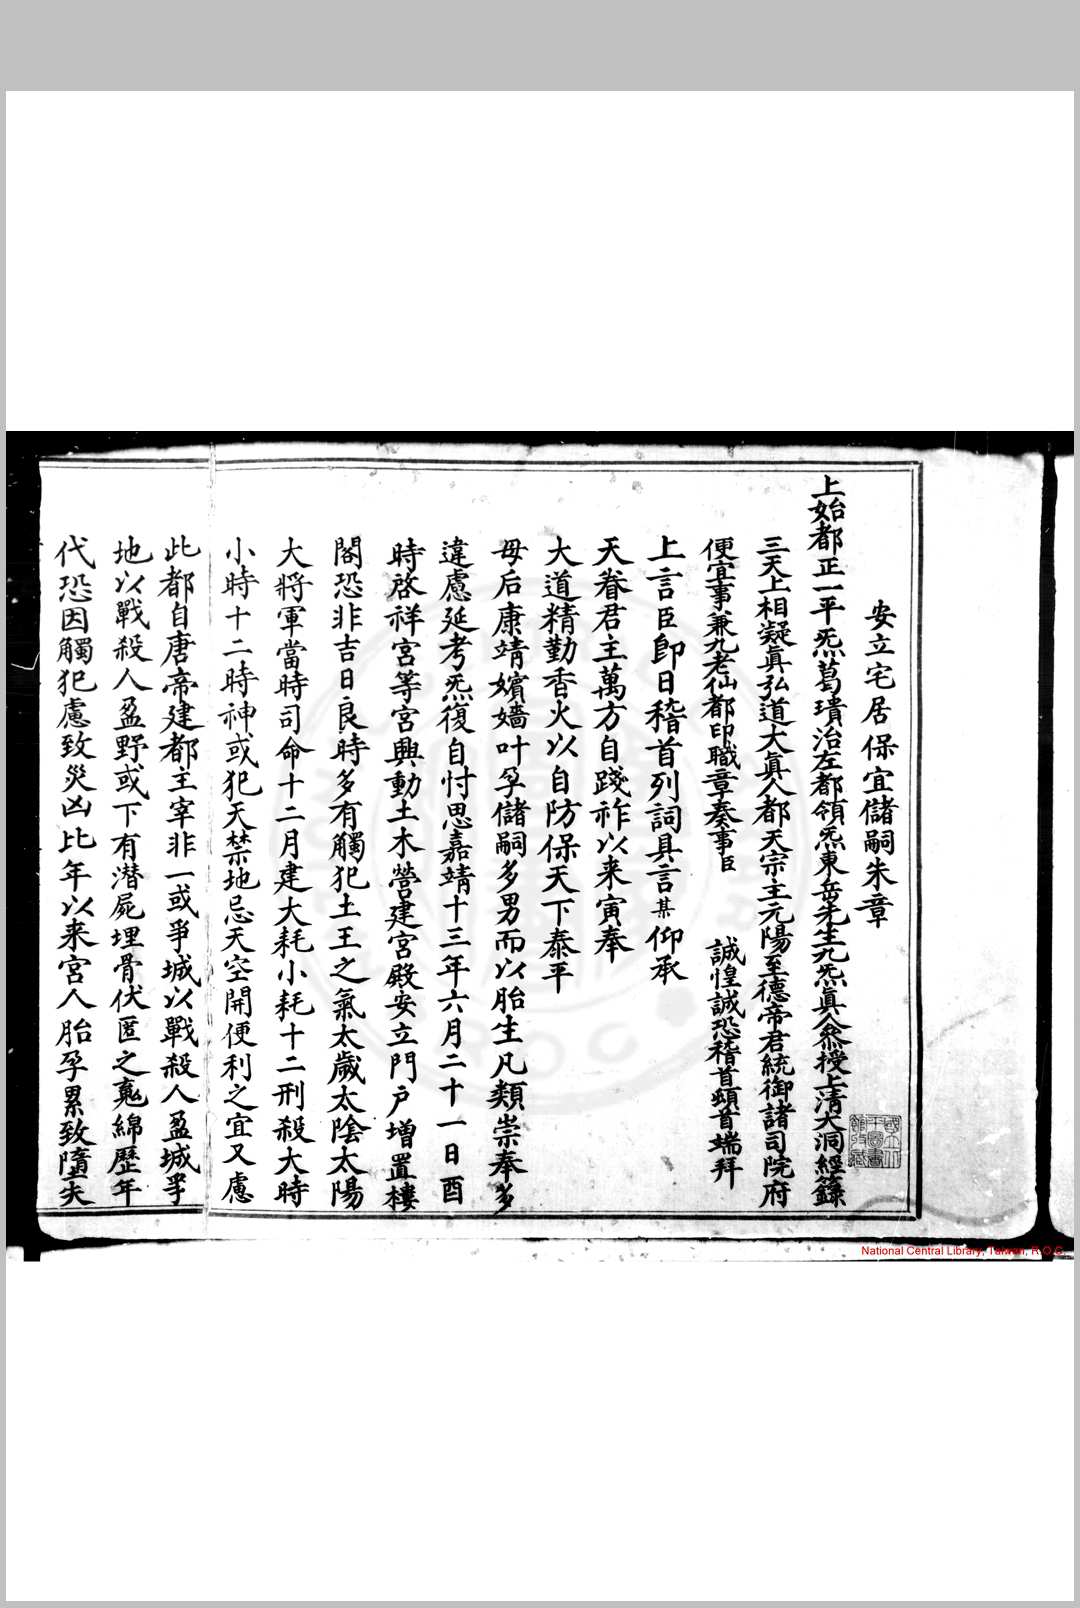 安立宅居保宜儲嗣朱章
上始都正一平炁葛璝治左都領炁東岳先生九炁眞人叅授上清大洞經籙
三天上相凝眞弘道大眞人都天宗主元陽至德帝君統御諸司院府
便宜事兼九老仙都印職章奏事臣 誠惶誠恐稽首頓首端拜
上言臣卽日稽首列詞具言某仰承
天眷君主萬方自踐祚以来寅奉
大道精勤香火以自防保天下泰平
母后康靖嬪嬙叶孕儲嗣多男而以胎生凡類崇奉多
違慮延考炁復自忖思嘉靖十三年六月二十一日酉
時啓祥宮等宮興動土木營建宮殿安立門戶增置樓
閣恐非吉日良時多有觸犯土王之氣太歲太陰太陽
大將軍當時司命十二月建大耗小耗十二刑殺大時
小時十二時神或犯天禁地忌天空開便利之宜又慮
此都自唐帝建都主宰非一或爭城以戰殺人盈城爭
地以戰殺人盈野或下有潜屍埋骨伏匿之䰟綿歷年
代恐因觸犯慮致災凶比年以来宮人胎孕累致墮夭
國立中央圖書館收藏
National Central Library, Taiwan, R.O.C